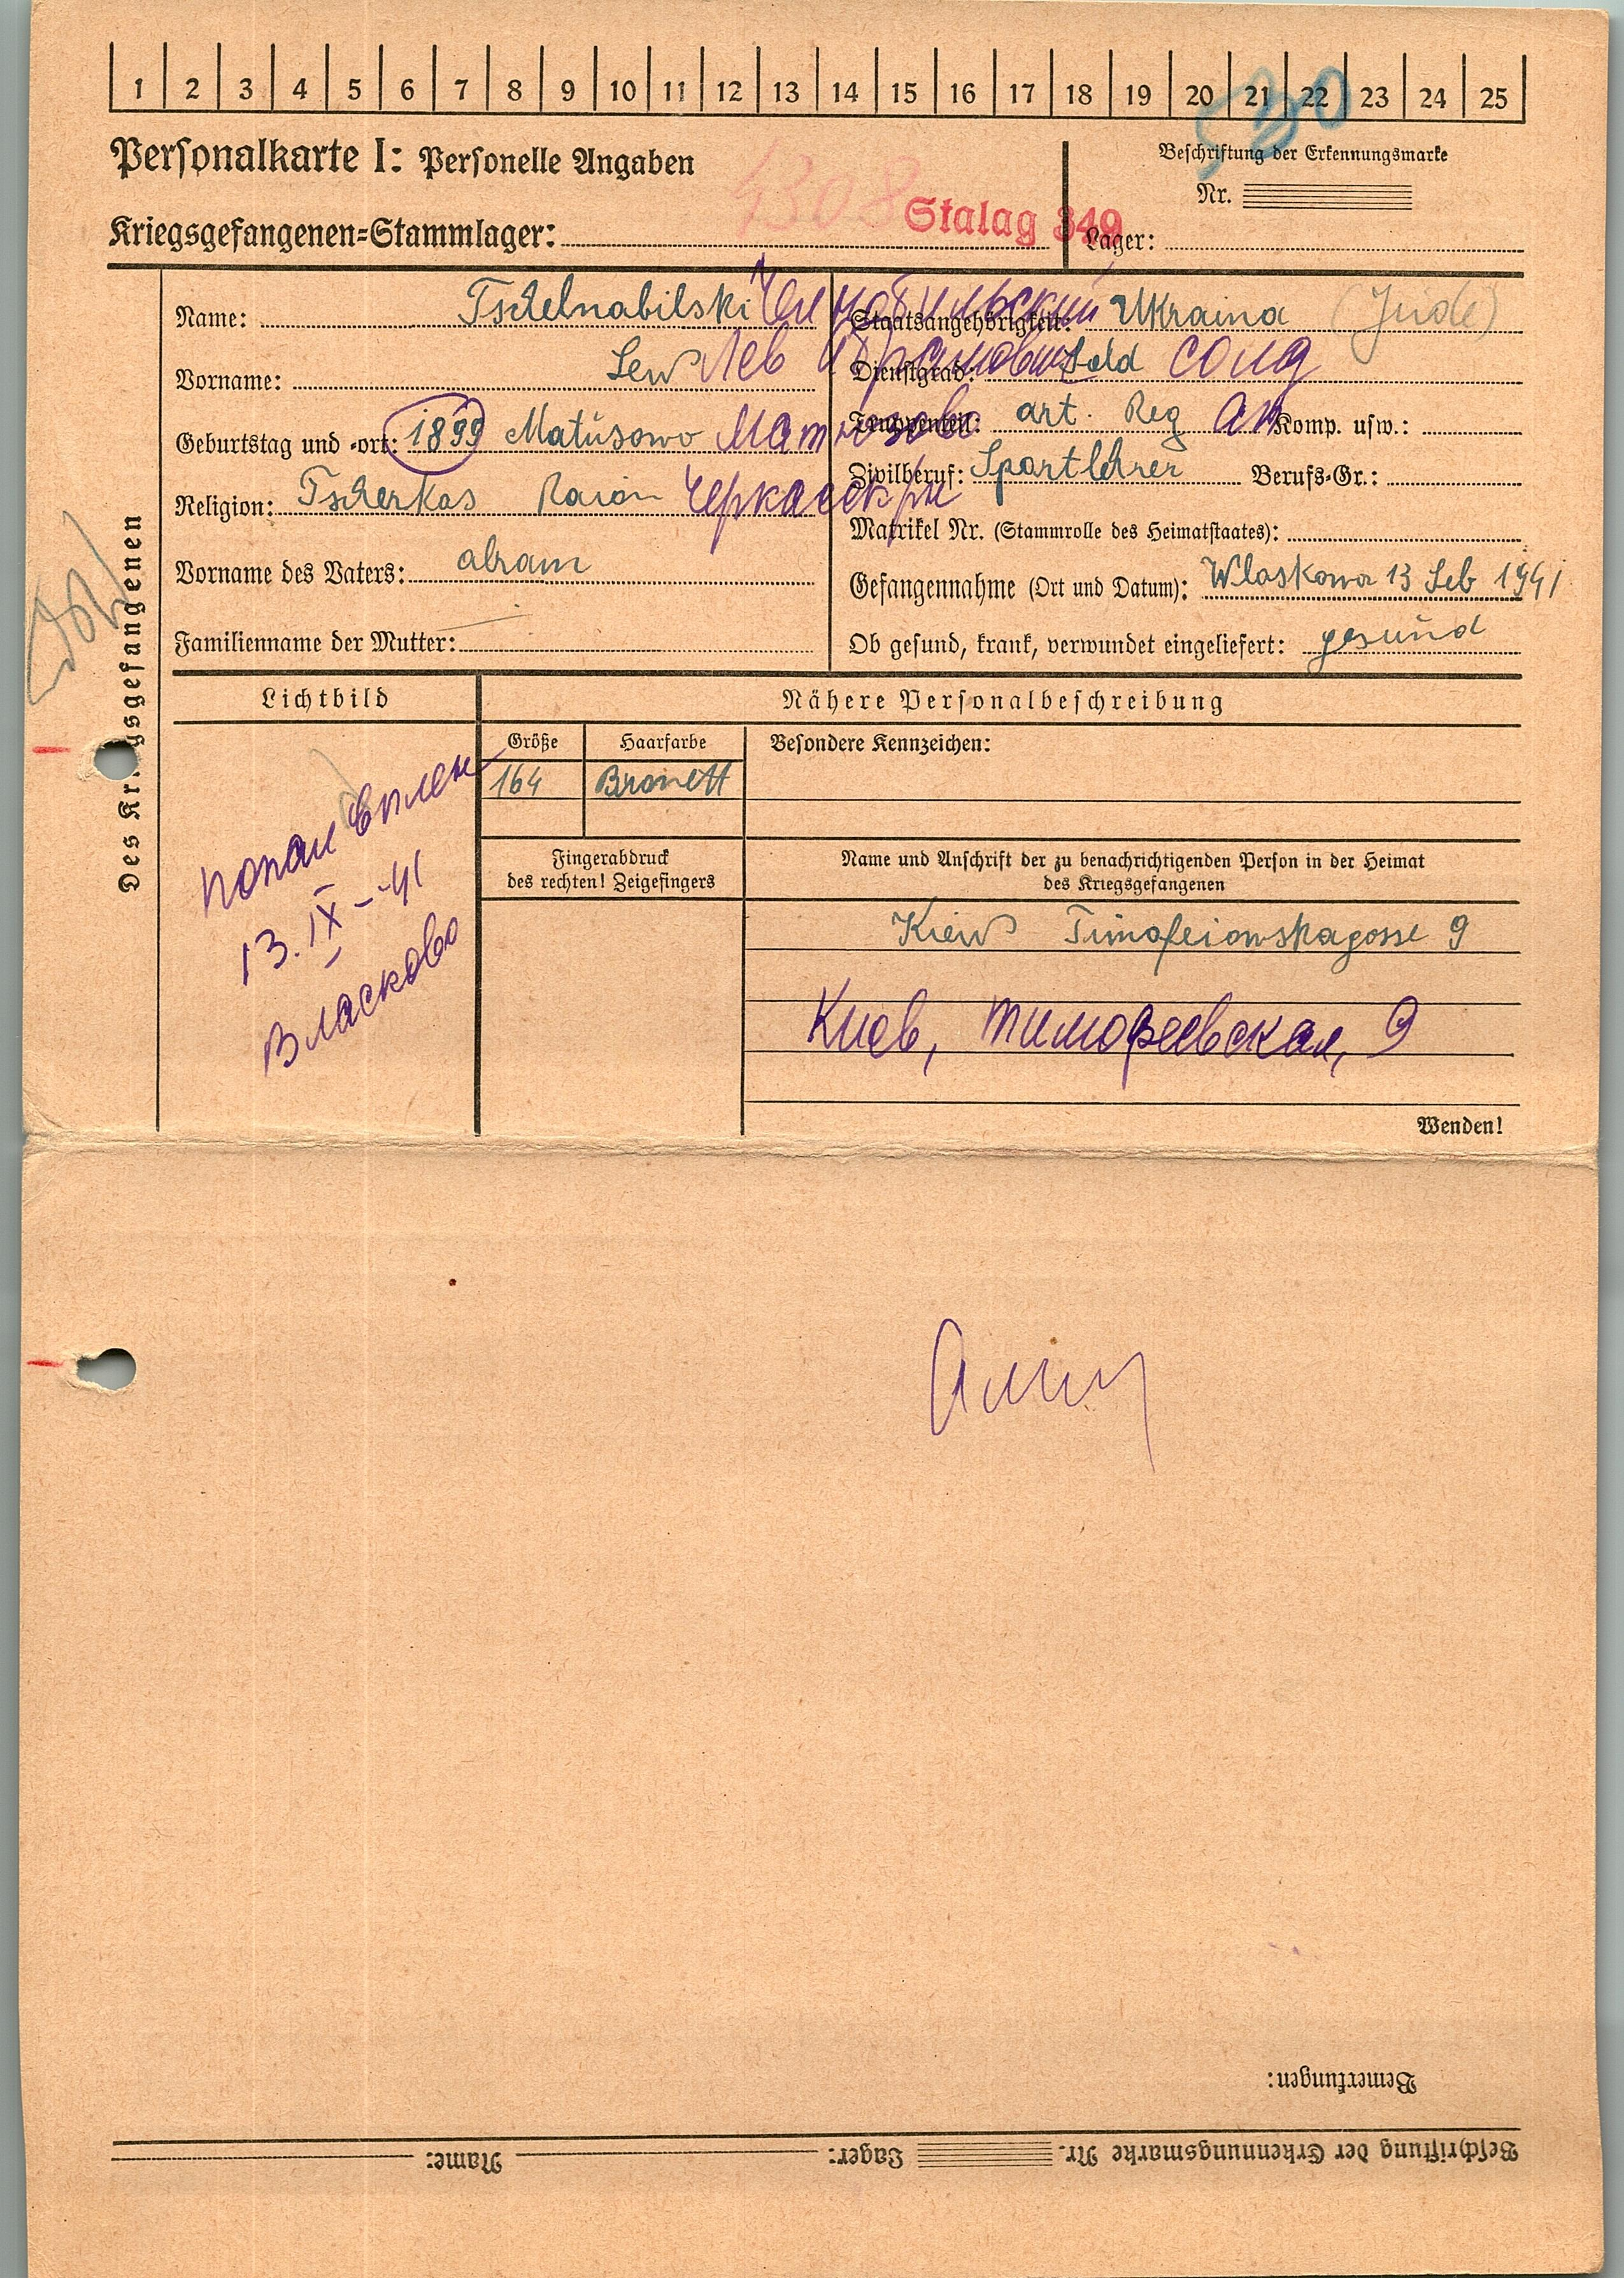 1 2 3 4 5 6 7 8 9 10 11 12 13 14 15 16 17 18 19 20 21 22 23 24 25
530
Personalkarte I: Personelle Angaben
Beschriftung der Erkennungsmarke
Nr.
4308
Kriegsgefangenen-Stammlager: Stalag 349
Lager:
Des Kriegsgefangenen
Name: Tschelnabilski Челнобильский
Vorname: Lew Лев Абрамович
Geburtstag und -ort: 1899 Matusowo Матюзово
Religion: Tscherkas Raion Черкасск рн
Vorname des Vaters: abram
Familienname der Mutter:
Staatsangehörigkeit: Ukraina (Jude)
Dienstgrad: Sold солд
Truppenteil: art. Reg ап Komp. usw.:
Zivilberuf: Sportlehrer Berufs-Gr.:
Matrikel Nr. (Stammrolle des Heimatstaates):
Gefangennahme (Ort und Datum): Wlaskowa 13 Seb 1941
Ob gesund, krank, verwundet eingeliefert: gesund
Lichtbild
попал в плен
13. IX - 41
Власково
Nähere Personalbeschreibung
Größe Haarfarbe Besondere Kennzeichen:
164 Bronett
Fingerabdruck
des rechten! Zeigefingers
Name und Anschrift der zu benachrichtigenden Person in der Heimat
des Kriegsgefangenen
Kiew Timofeiowskagosse 9
Киев, Тимофеевская, 9
Wenden!
Bemerkungen:
Beschriftung der Erkennungsmarke Nr. Lager: Name: